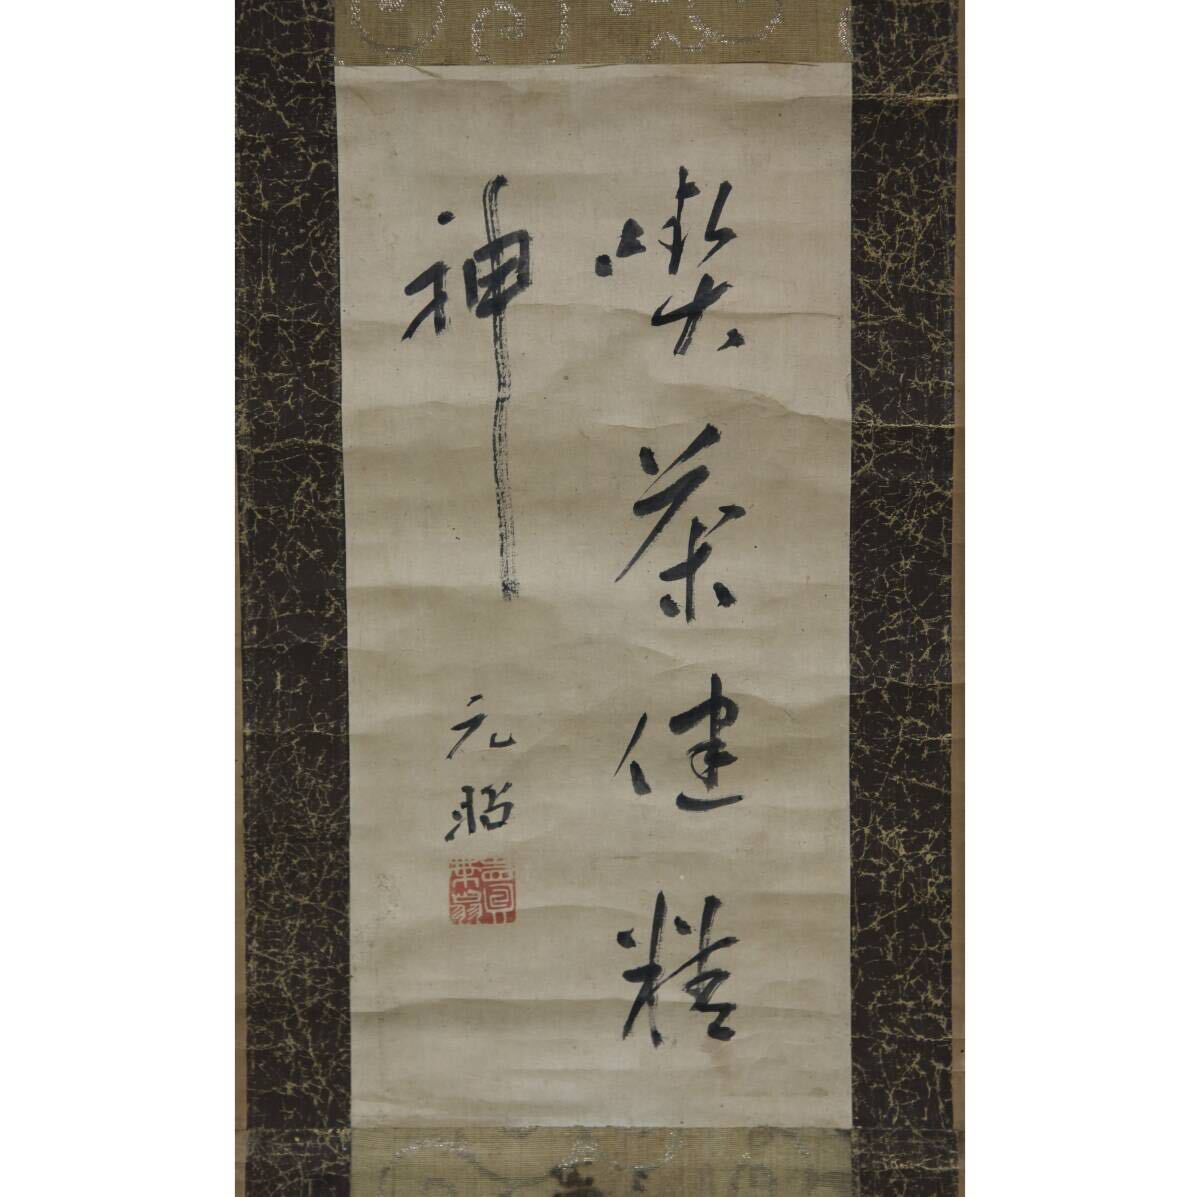 喫茶健精
神
元昭